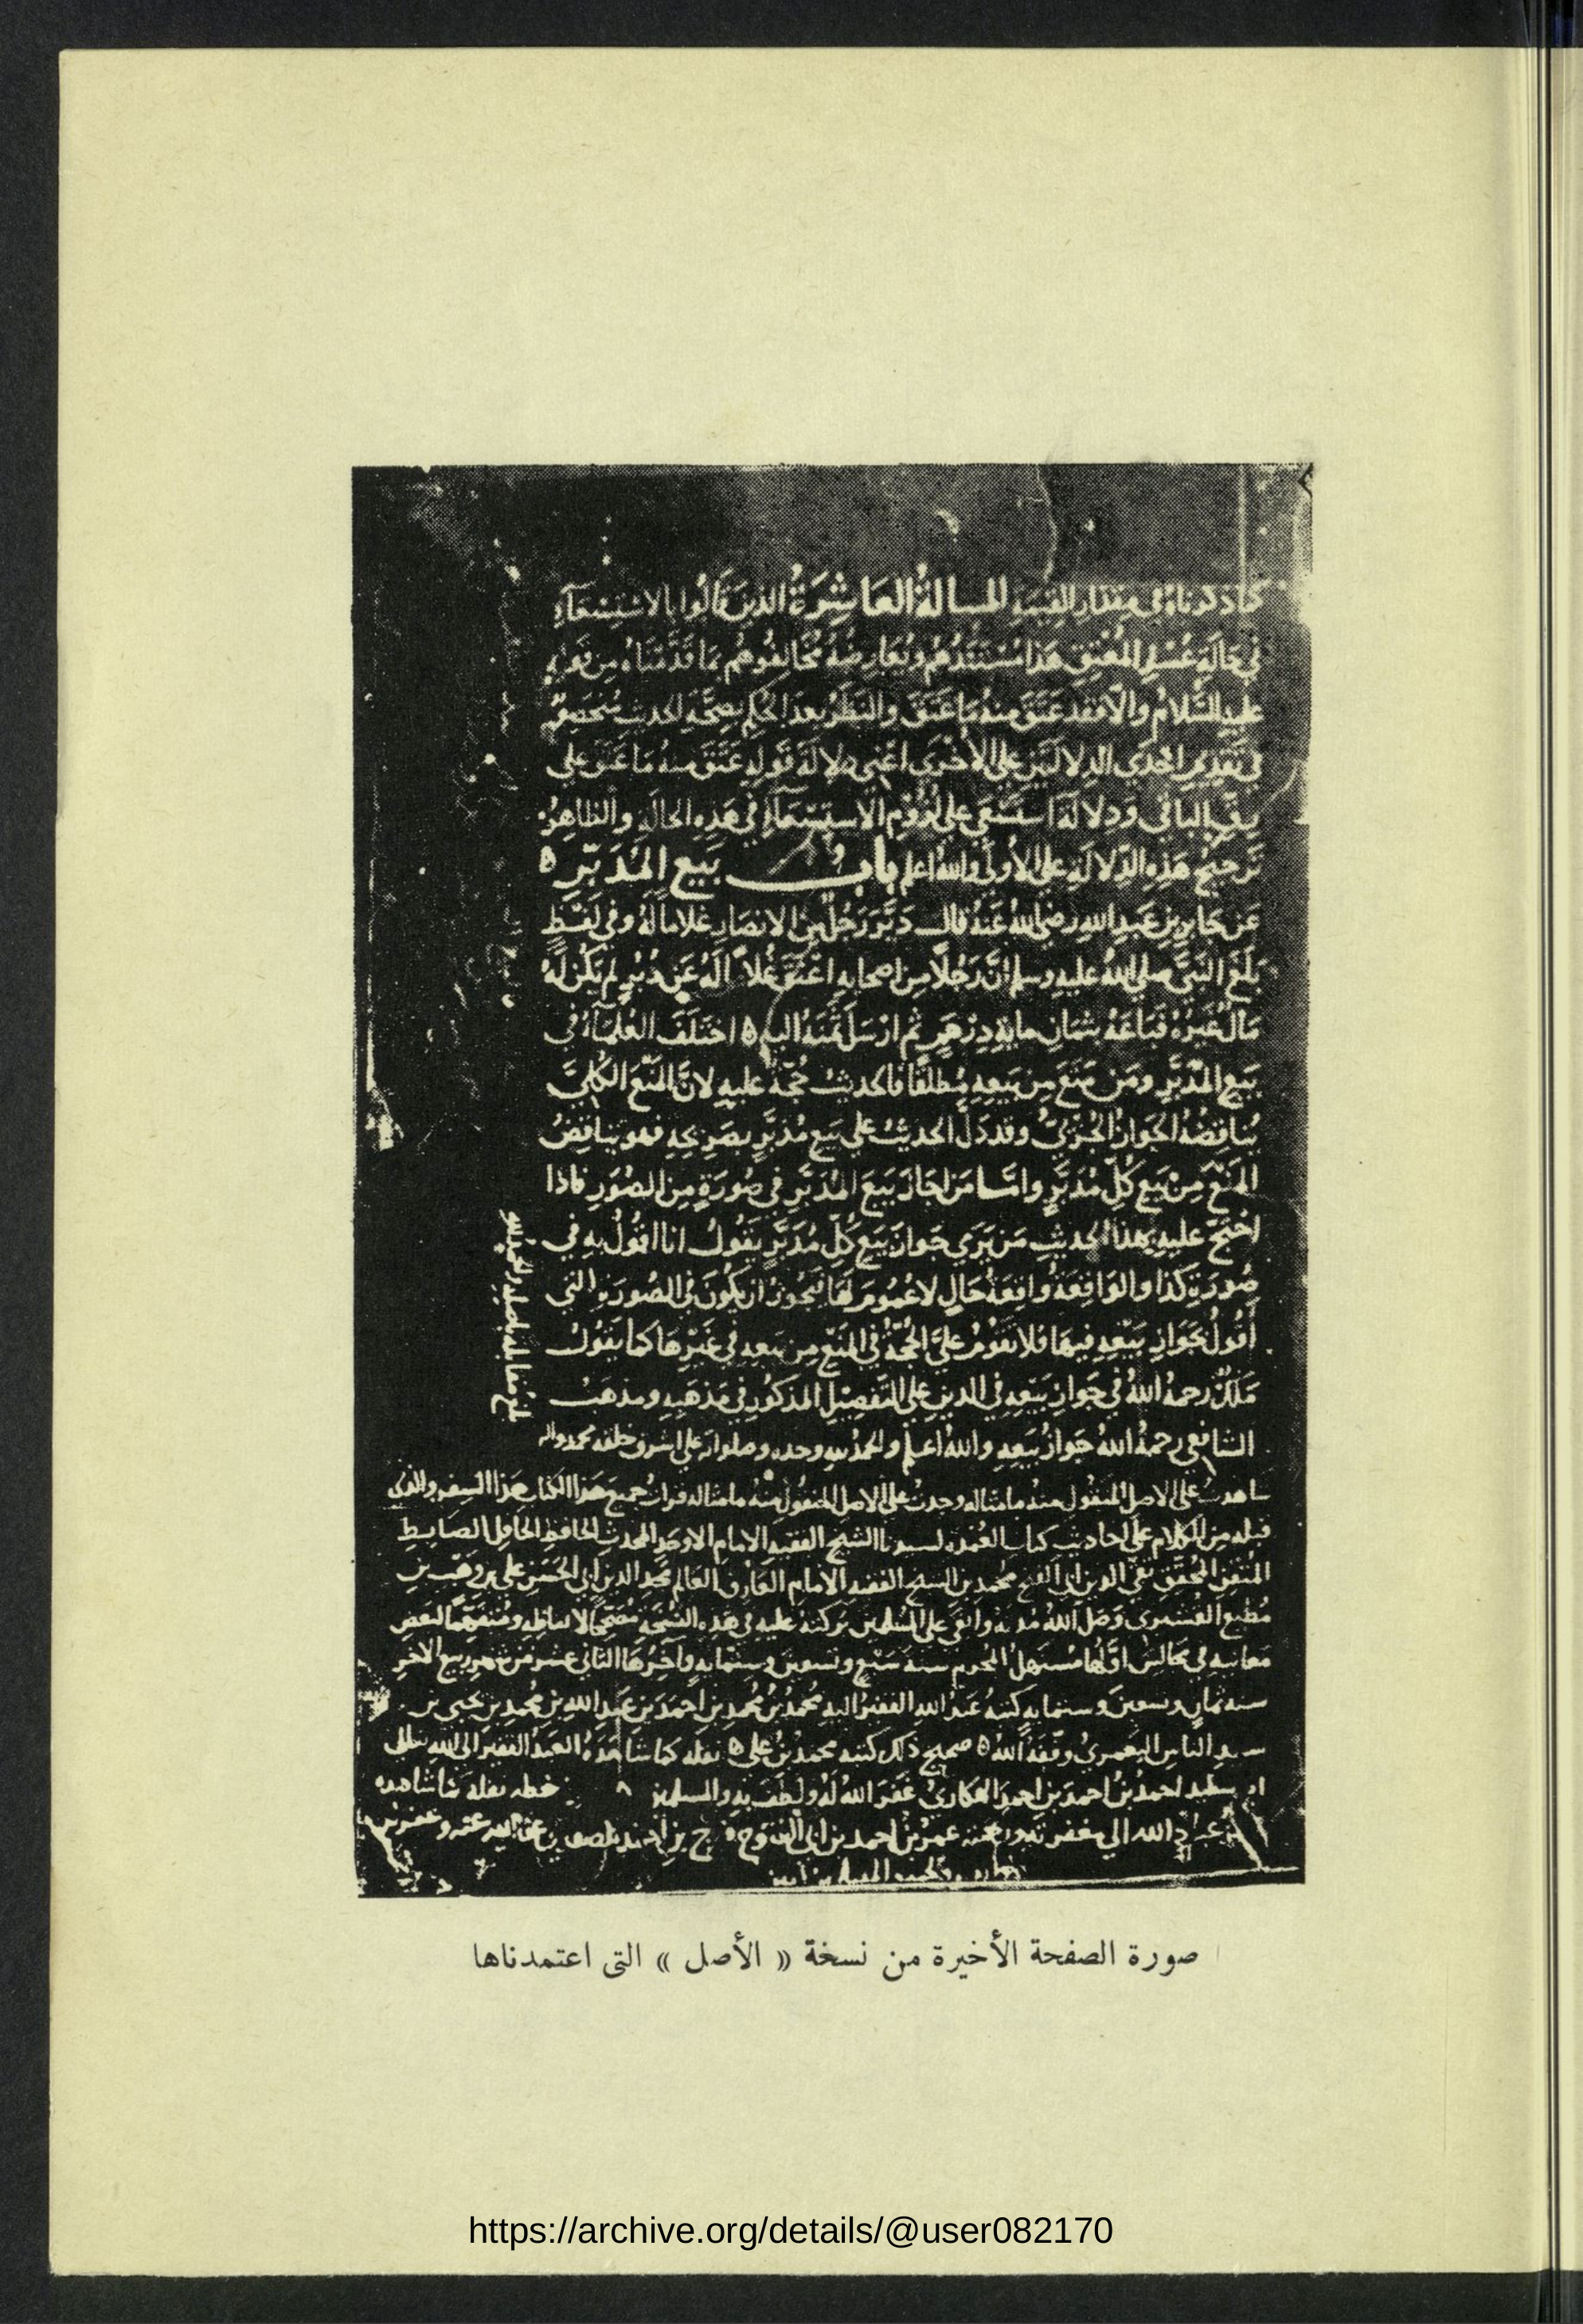 كما ذكرناه في مقدار القيمة المسالة العاشرة الذين قالوا بالاستسعآء
في حالة عسر المعتق هذا مستندهم ويعارضه مخالفوهم بما قدمناه من قوله
عليه السلام والا فقد عتق منه ما عتق والنظر بعد الحكم بصحة الحديث منحصر
في تقديم احدى الدلالتين على الأخرى اعني دلالة قوله عتق منه ما عتق على
الباقي ودلالة استسعي على لزوم الاستسعآء في هذه الحالة والظاهر
ترجيح هذه الدلالة على الأولى والله اعلم باب بيع المدبر ه
عن جابر بن عبد الله رضي الله عنه قال دبر رجل من الانصار غلاما له وفي لفظ
بلغ النبي صلى الله عليه وسلم ان رجلا من اصحابه اعتق غلاما له عن دبر لم يكن له
مال غيره فباعه بثمان ماية درهم ثم ارسل ثمنه اليه ه اختلف العلمآء في
بيع المدبر ومن منع من بيعه مطلقا فالحديث حجة عليه لان المنع الكلي
يناقضه الجواز الجزئي وقد دل الحديث على بيع مدبر بصريحه فهو يناقض
المنع من بيع كل مدبر واما من اجاز بيع المدبر في صورة من الصور فاذا
احتج عليه بهذا الحديث من يرى جواز بيع كل مدبر يقول انا اقول به في
صورة كذا والواقعة واقعة حال لا عموم لها فيجوز ان يكون في الصورة التي
أقول بجواز بيعه فيها فلا تقوم علي الحجة في المنع من بيعه في غيرها كما يقول
ملك رحمه الله في جواز بيعه في الدين على التفصيل المذكور في مذهبه ومذهب
الشافعي رحمه الله جواز بيعه والله اعلم والحمد لله وحده وصلواته على اشرف خلقه محمد واله
شاهدت على الاصل المنقول منه ما مثاله وجدت على الاصل المنقول منه ما مثاله قرات جميع هذا الكتاب هذا السفر والذي
قبله من الكلام على احاديث كتاب العمدة لسيدنا الشيخ الفقيه الامام الاوحد المحدث الحافظ الحافل الضابط
المتقن المحقق تقي الدين ابي الفتح محمد بن الشيخ الفقيه الامام العارف العالم مجد الدين ابي الحسن علي بن وهب بن
مطيع القشيري وصل الله مدته وابقى على المسلمين بركته عليه في هذه النسخة مصححا لالفاظه ومتفهما لبعض
معانيه في مجالس اولها مستهل المحرم سنة سبع وتسعين وستماية وآخرها الثاني عشر من شهر ربيع الآخر
سنة ثمان وتسعين وستماية كتبه عبد الله الفقير اليه محمد بن محمد بن احمد بن عبد الله بن محمد بن يحيى بن
سيد الناس اليعمري وفقه الله ه صحيح ذلك كتبه محمد بن علي ه نقله كما شاهده العبد الفقير الى الله تعالى
احمد بن احمد بن احمد الهكاري غفر الله له ولطف به والمسلمين خطه نقله شاهده
الله الى مغفرته عمر بن احمد بن ابي الفتوح
صورة الصفحة الأخيرة من نسخة « الأصل » التى اعتمدناها
https://archive.org/details/@user082170